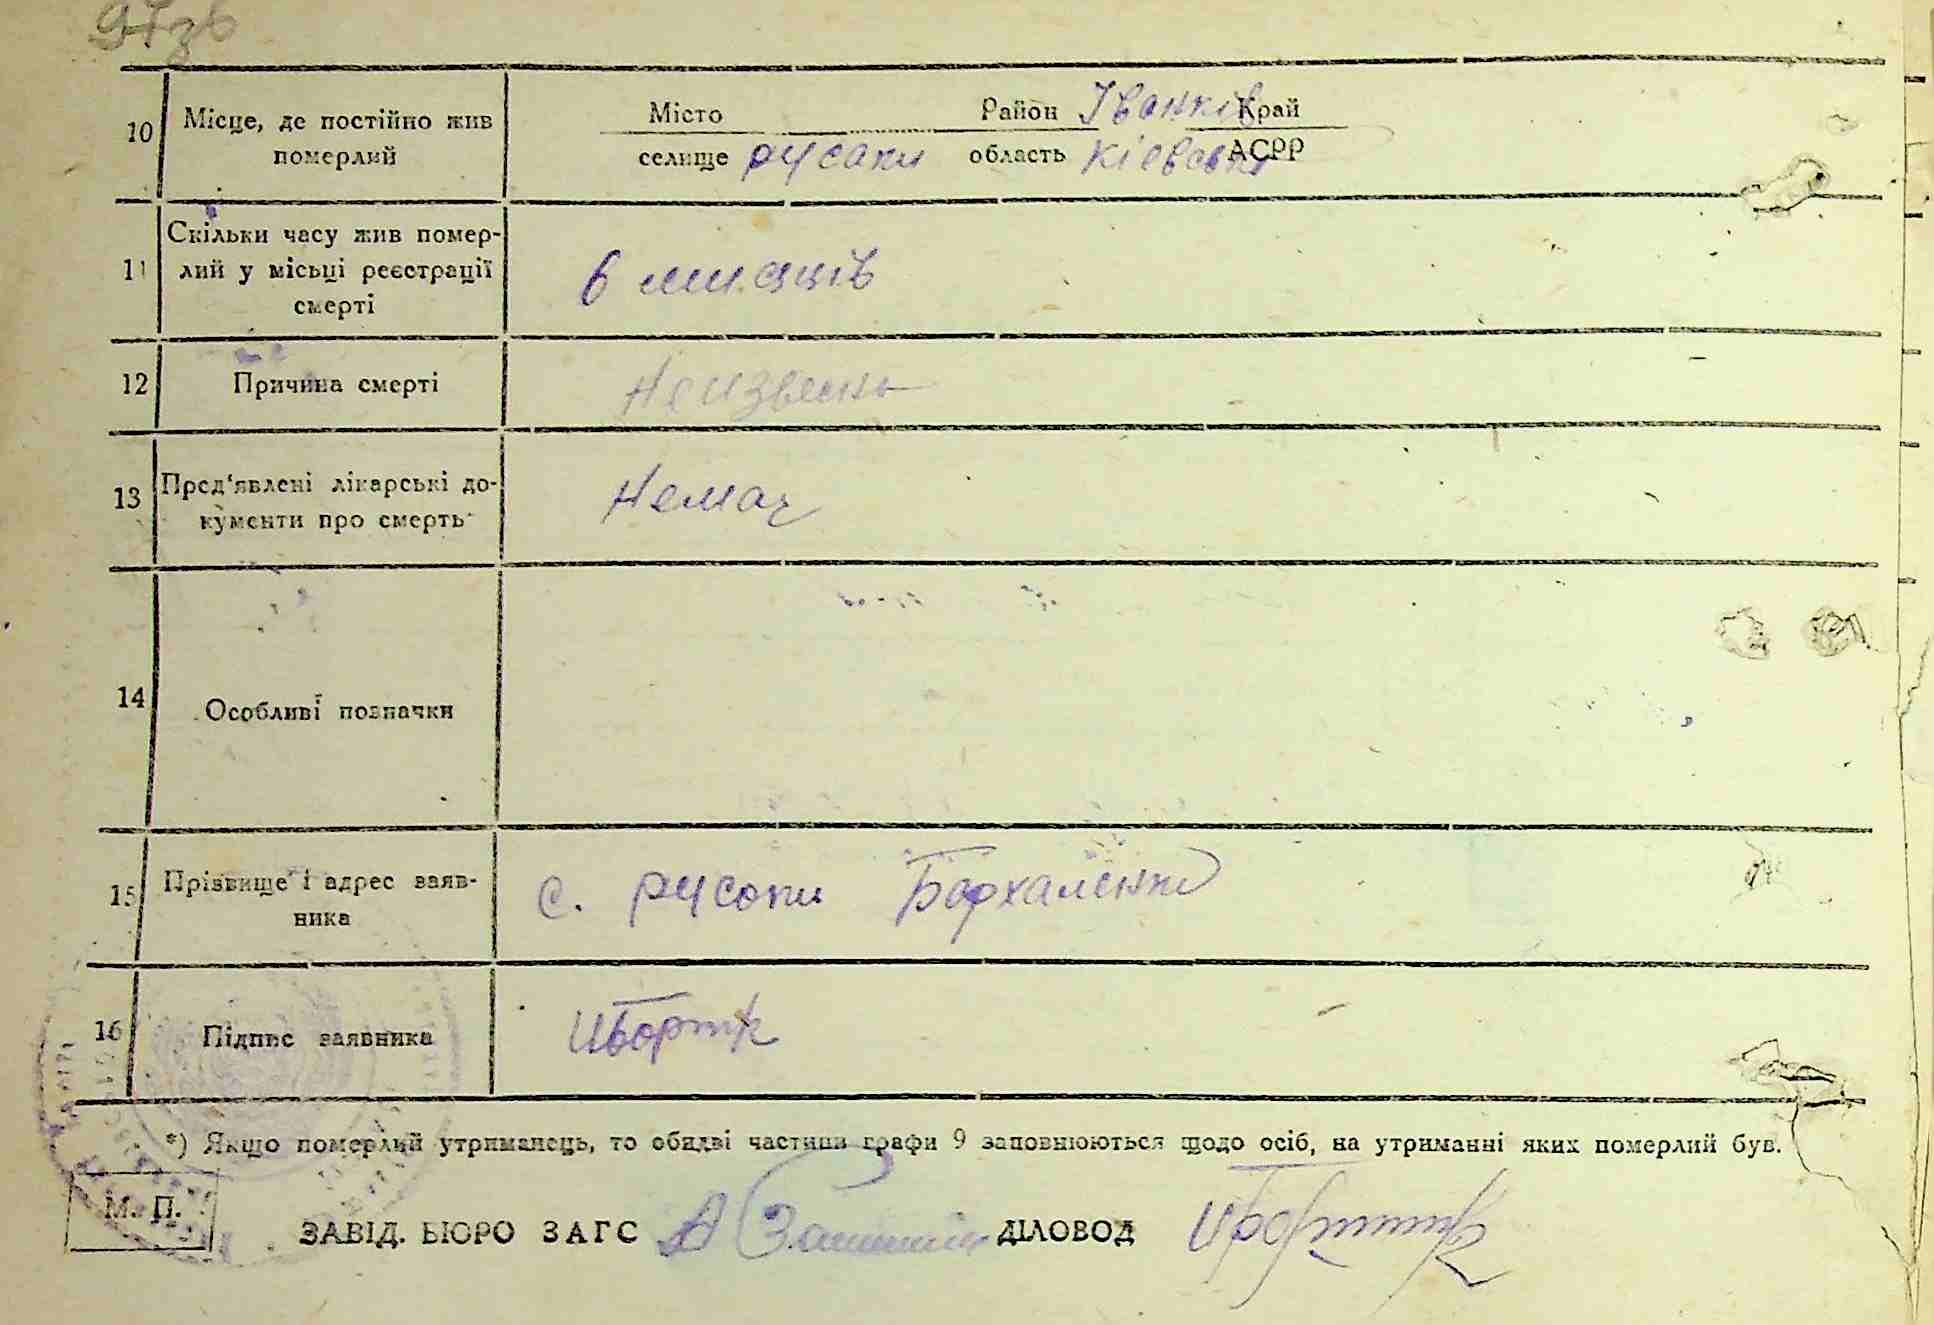 10 Місце, де постійно жив
померлий
Місто Район Іванків Край
селище русаки область Кіевски АСРР
11 Скільки часу жив помер-
лий у місьці реєстрації
смерті
6 мисяців
12 Причина смерті Неизвесно
13 Пред‘явлені лікарські до-
кументи про смерть
Немає
14 Особливі позначки
15 Прізвище і адрес заяв-
ника
с. русаки Бархаленко
16 Підпис заявника
*) Якщо померлий утриманець, то обидві частини графи 9 заповнюються щодо осіб, на утриманні яких померлий був.
М. П.
ЗАВІД. БЮРО ЗАГС ДІЛОВОД